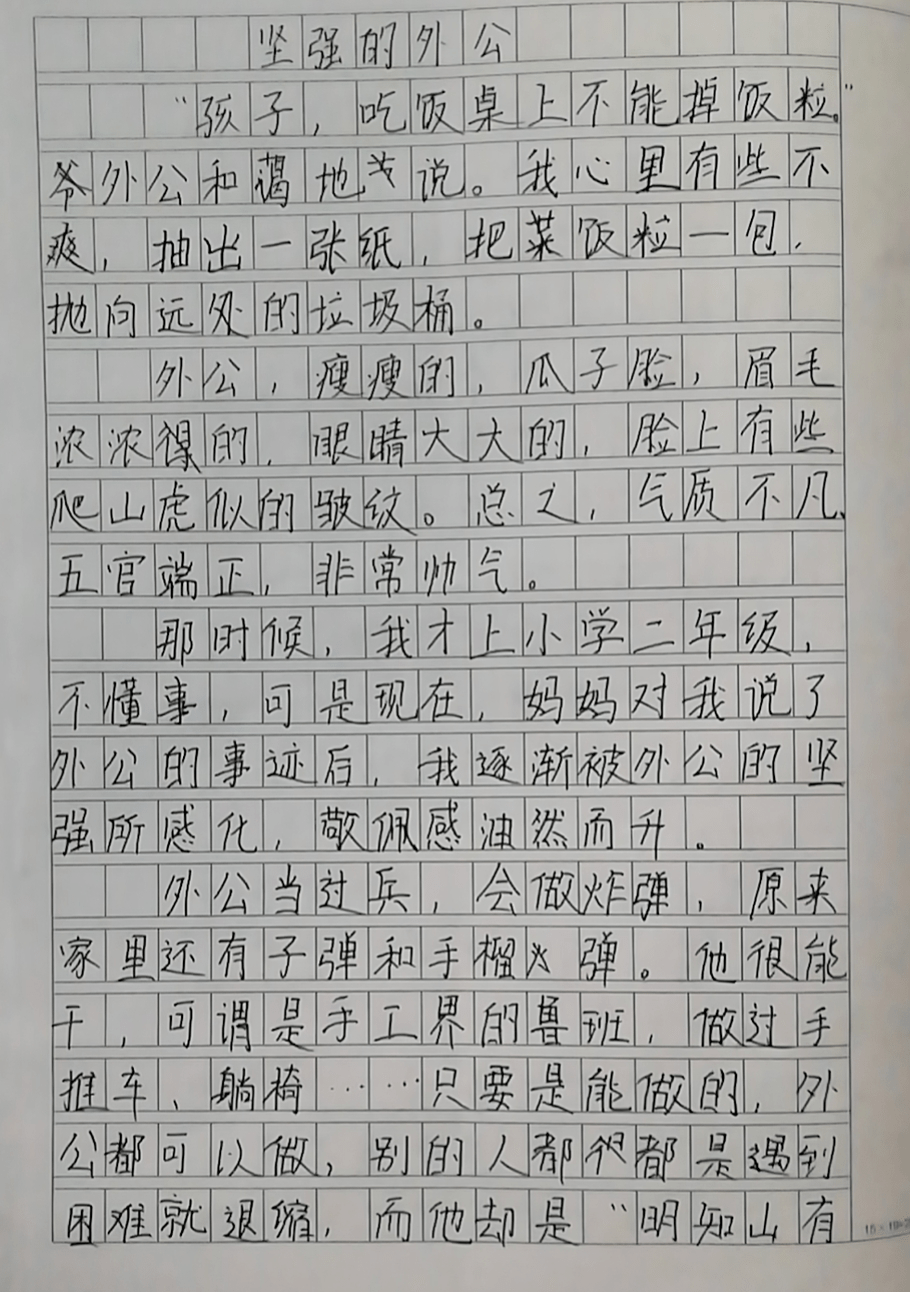 坚强的外公
“孩子，吃饭桌上不能掉饭粒。”
爷外公和蔼地说。我心里有些不
爽，抽出一张纸，把菜饭粒一包，
抛向远处的垃圾桶。
外公，瘦瘦的，瓜子脸，眉毛
浓浓的，眼睛大大的，脸上有些
爬山虎似的皱纹。总之，气质不凡、
五官端正，非常帅气。
那时候，我才上小学二年级，
不懂事，可是现在，妈妈对我说了
外公的事迹后，我逐渐被外公的坚
强所感化，敬佩感油然而升。
外公当过兵，会做炸弹，原来
家里还有子弹和手榴弹。他很能
干，可谓是手工界的鲁班，做过手
推车、躺椅……只要是能做的，外
公都可以做，别的人都都是遇到
困难就退缩，而他却是“明知山有